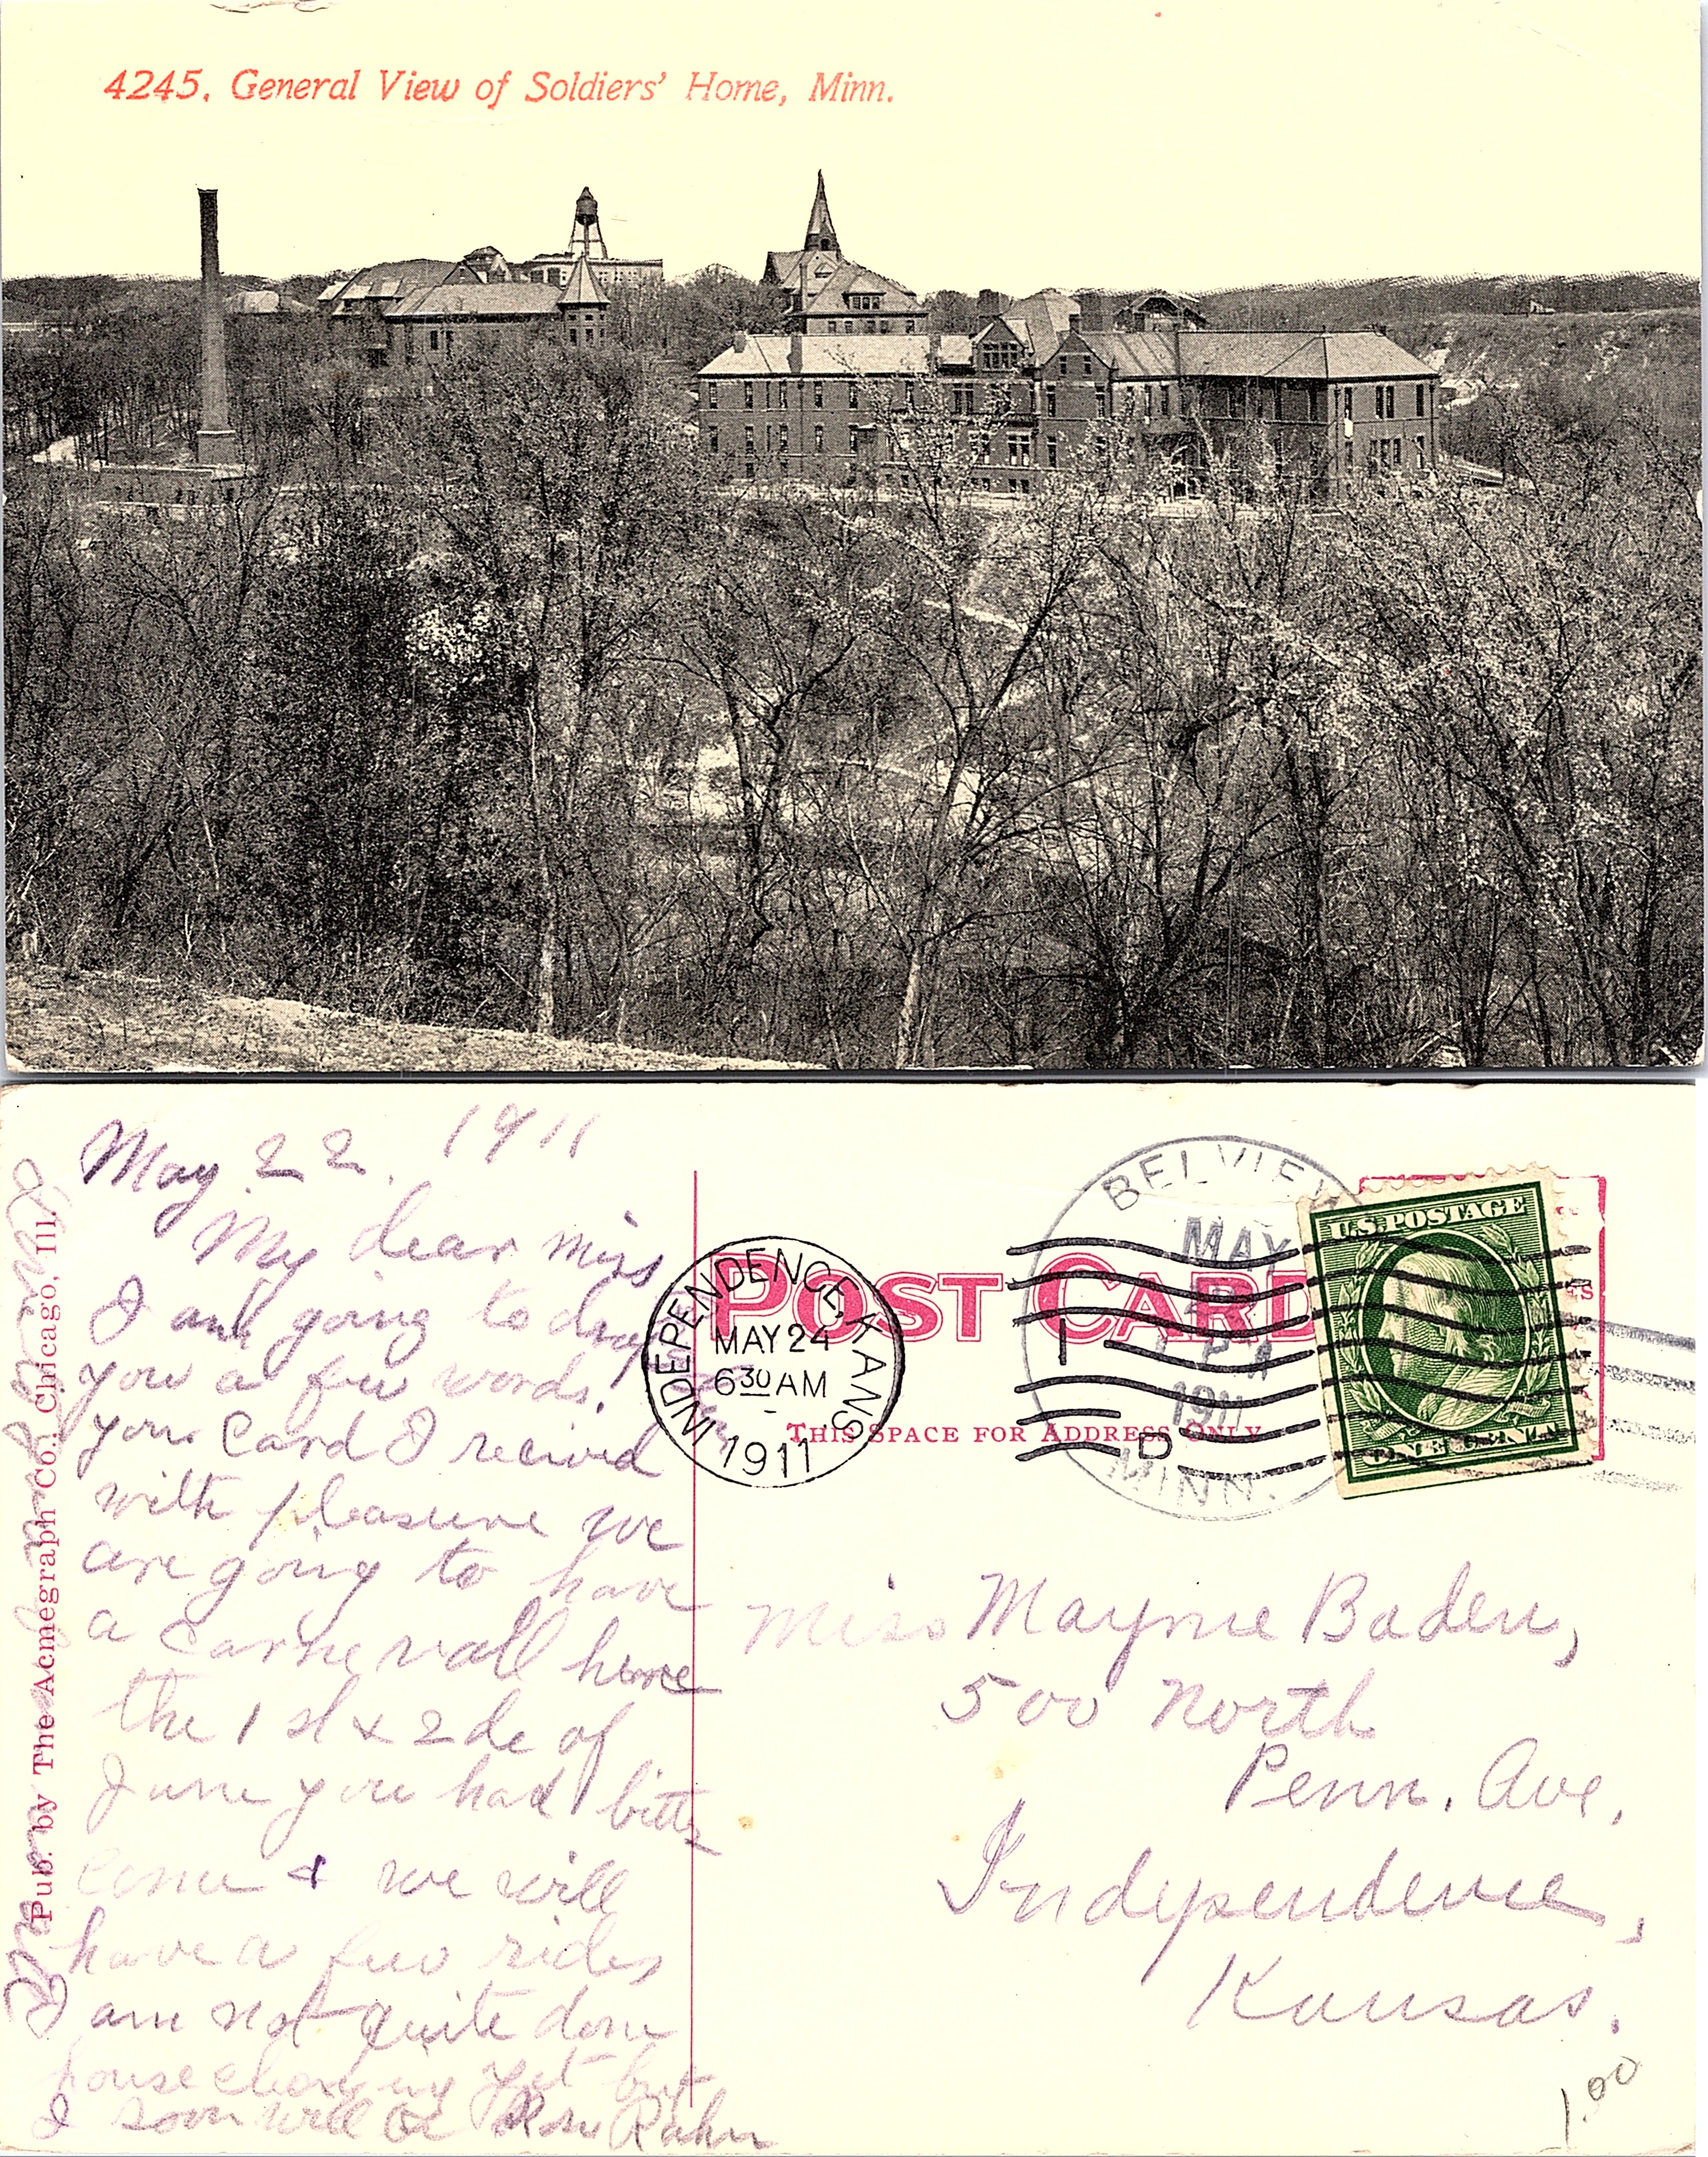 4245. General View of Soldiers' Home, Minn.
May 22. 1911
My dear miss
I am going to drop
you a few words.
your Card I recived
with pleasure we
are going to have
a Carnevall here
the 1st & 2de of
June you had bitter
come & we will
have a few rides
I am not quite done
house cleaning yet but
I soon will be Rose Rahn
Pub. by The Acmegraph Co., Chicago, Ill.
POST CARD
THIS SPACE FOR ADDRESS ONLY
INDEPENDENCE, KANS.
MAY 24
6 30 AM
1911
BELVIEW
MAY
1911
MINN.
1
D
U.S. POSTAGE
Miss Mayme Baden,
500 North
Penn. Ave.,
Independence,
Kansas.
1.00